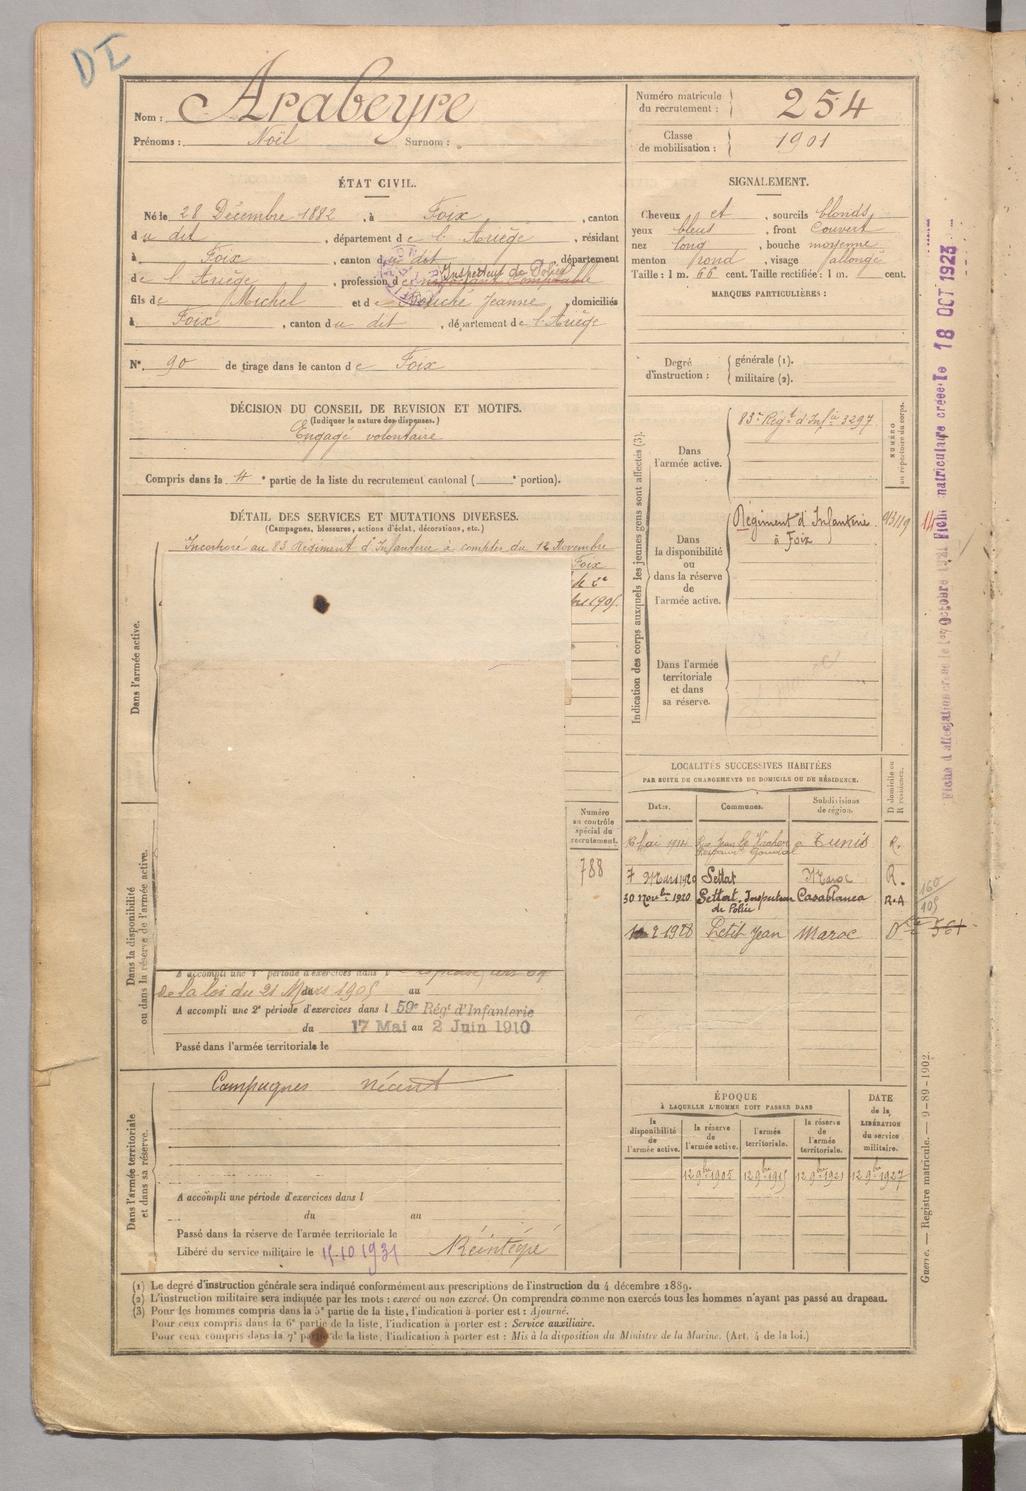 DI
Nom : Arabeyre
Prénoms : Noël Surnom :
Numéro matricule du recrutement : 254
Classe de mobilisation : 1901
ÉTAT CIVIL.
Né le 28 Décembre 1882, à Foix, canton
du dit, département de l'Ariège, résidant
à Foix, canton du dit, département
de l'Ariège, profession de Inspecteur de Police
fils de Michel et de Jeanne, domiciliés
à Foix, canton du dit, département de l'Ariège
N° 90 de tirage dans le canton de Foix
DÉCISION DU CONSEIL DE REVISION ET MOTIFS.
(Indiquer la nature des dispenses.)
Engagé volontaire
Compris dans la 4e partie de la liste du recrutement cantonal ( e portion).
DÉTAIL DES SERVICES ET MUTATIONS DIVERSES.
(Campagnes, blessures, actions d'éclat, décorations, etc.)
Incorporé au 83 Régiment d'Infanterie à compter du 12 Novembre
Foix
Dans l'armée active.
SIGNALEMENT.
Cheveux et, sourcils blonds,
yeux bleus, front Couvert
nez long, bouche moyenne
menton rond, visage allongé
Taille : 1 m. 66 cent. Taille rectifiée : 1 m. cent.
MARQUES PARTICULIÈRES :
Degré d'instruction : générale (1).
militaire (2).
Indication des corps auxquels les jeunes gens sont affectés (3).
NUMÉRO au répertoire du corps.
Dans l'armée active.
83e Régt d'Infie 3297
Dans la disponibilité ou dans la réserve de l'armée active.
Régiment d'Infanterie
à Foix
Dans l'armée territoriale et dans sa réserve.
18 OCT 1923
LOCALITÉS SUCCESSIVES HABITÉES
PAR SUITE DE CHANGEMENTS DE DOMICILE OU DE RÉSIDENCE.
Dates. Communes. Subdivisions de région. D domicile ou R résidence.
Mai 1914 Tunis R.
7 Mars 1920 Settat Maroc R.
30 novbre 1920 Settat. Inspecteur de Police Casablanca R.A
2-1928 Petit Jean Maroc D
160
105
Numéro au contrôle spécial du recrutement.
788
Dans la disponibilité ou dans la réserve de l'armée active.
A accompli une 1e période d'exercices dans l
de la loi du 21 Mars 1905 au
A accompli une 2e période d'exercices dans l 59e Régt d'Infanterie
du 17 Mai au 2 Juin 1910
Passé dans l'armée territoriale le
Dans l'armée territoriale et dans sa réserve.
Campagnes néant
A accompli une période d'exercices dans l
du au
Passé dans la réserve de l'armée territoriale le
Libéré du service militaire le 15.10 1931
ÉPOQUE
À LAQUELLE L'HOMME DOIT PASSER DANS
DATE de la LIBÉRATION du service militaire.
la disponibilité de l'armée active. la réserve de l'armée active. l'armée territoriale. la réserve de l'armée territoriale.
12 9bre 1905 12 9bre 1915 12 9bre 1921 12 9bre 1927
Guerre. — Registre matricule. — 9-89-1902.
(1) Le degré d'instruction générale sera indiqué conformément aux prescriptions de l'instruction du 4 décembre 1889.
(2) L'instruction militaire sera indiquée par les mots : exercé ou non exercé. On comprendra comme non exercés tous les hommes n'ayant pas passé au drapeau.
(3) Pour les hommes compris dans la 5e partie de la liste, l'indication à porter est : Ajourné.
Pour ceux compris dans la 6e partie de la liste, l'indication à porter est : Service auxiliaire.
Pour ceux compris dans la 7e partie de la liste, l'indication à porter est : Mis à la disposition du Ministre de la Marine. (Art. 4 de la loi.)